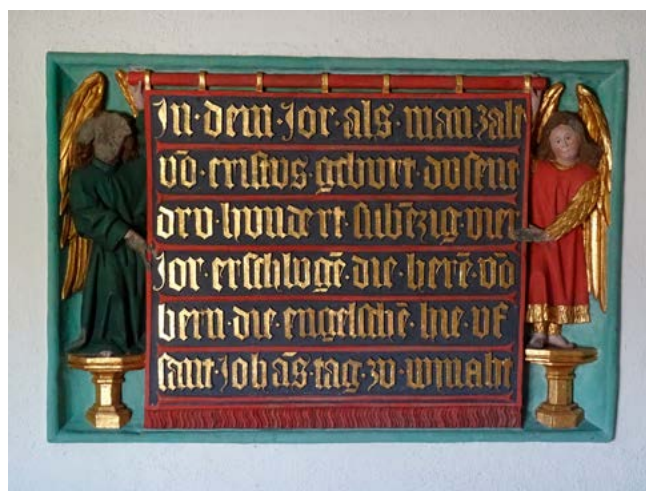 In·dem·Jor·als·man·zalt
vō·cristvs·geburt·dvsent
drv·hvndert·sibēzig·vier
Jor·erschlvgē·die·herē·vō
bern·die·engelschē·hie·vf
sant·Johās·tag·zv·winaht